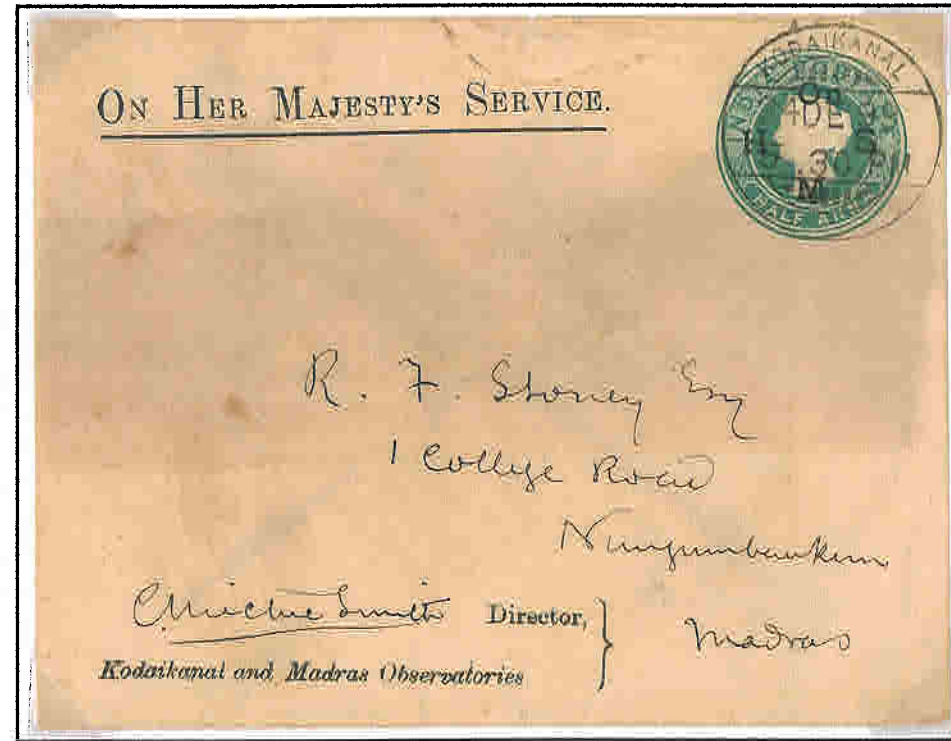 ON HER MAJESTY'S SERVICE.
KODAIKANAL
On
4 DE
H
M
HALF ANNA
R. F. Stoney Esq
1 College Road
Nungumbaukum
Madras
C Michie Smith Director,
Kodaikanal and Madras Observatories